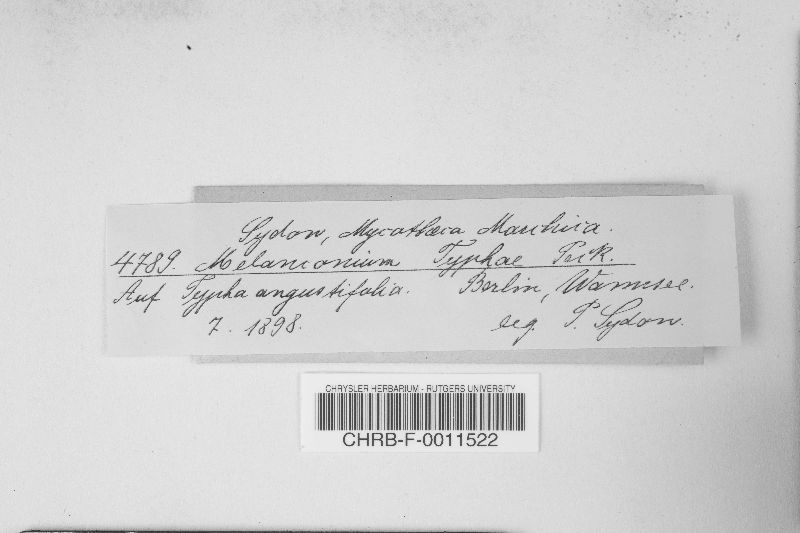 Sydon, Mycotheca Marchica.
4789. Melanconium Typhae Peck.
Auf Typha angustifolia. Berlin, Wannsee.
7. 1898. leg. P. Sydow.
CHRYSLER HERBARIUM - RUTGERS UNIVERSITY
CHRB-F-0011522